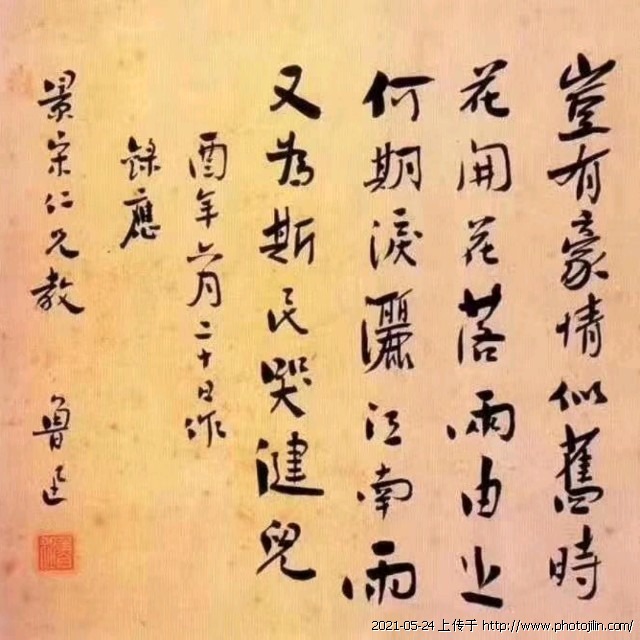 豈有豪情似舊時
花開花落兩由之
何期淚灑江南雨
又為斯民哭健兒
酉年六月二十日作
錄應
景宋仁兄教
魯迅
2021-05-24 上传于 http://www.photojilin.com/